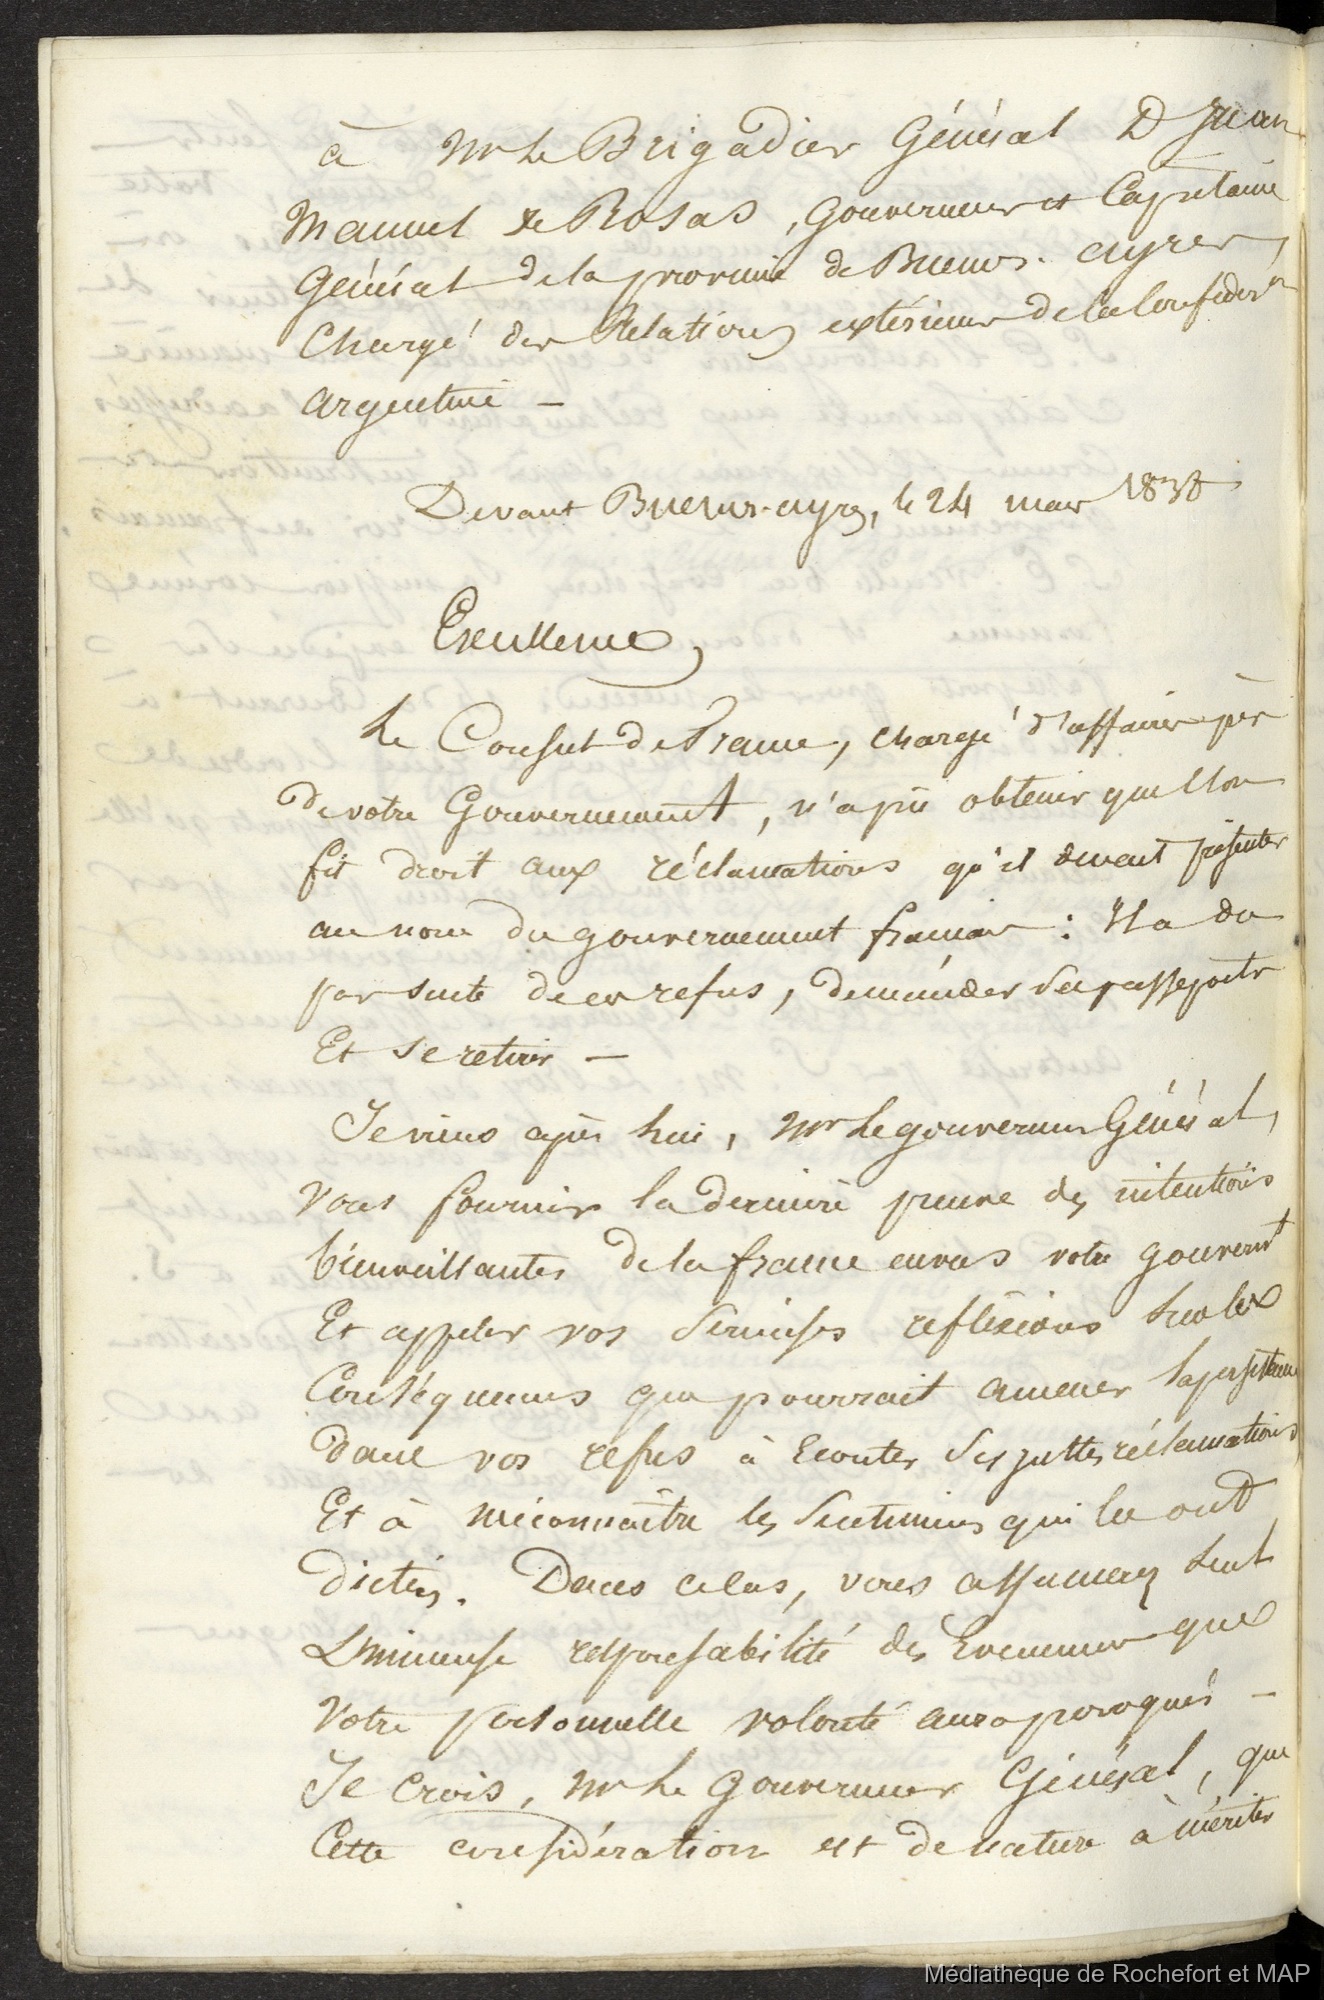 à Mr Le Brigadier Général D Juan
Manuel de Rosas, Gouverneur et Capitaine
Général de la province de Buenos-ayres,
Chargé des Relations extérieures de la Confédéron
argentine —
Devant Buenos-ayres, le 24 mars 1838
Excellence,
Le Consul de France, chargé d'affaires près
de votre Gouvernement, n'a pû obtenir que l'on
fit droit aux réclamations qu'il devait présenter
au nom du gouvernement français : Il a du
par suite de ce refus, demander ses passeports
Et se retirer —
Je viens après lui, Mr Le gouverneur Général,
vous fournir la dernière preuve des intentions
bienveillantes de la france envers votre gouvernt
Et appeler vos sérieuses réflexions sur les
Conséquences que pourrait amener la persistance
dans vos refus à Ecouter ses justes réclamations
Et à méconnaître les sentimens qui les ont
dictés. Dans ce cas, vous assumerez seul
L'immense responsabilité des Evenemens que
votre personnelle volonté aura provoqués —
Je crois, Mr Le Gouverneur Général, que
Cette considération est de nature à mériter
Médiathèque de Rochefort et MAP